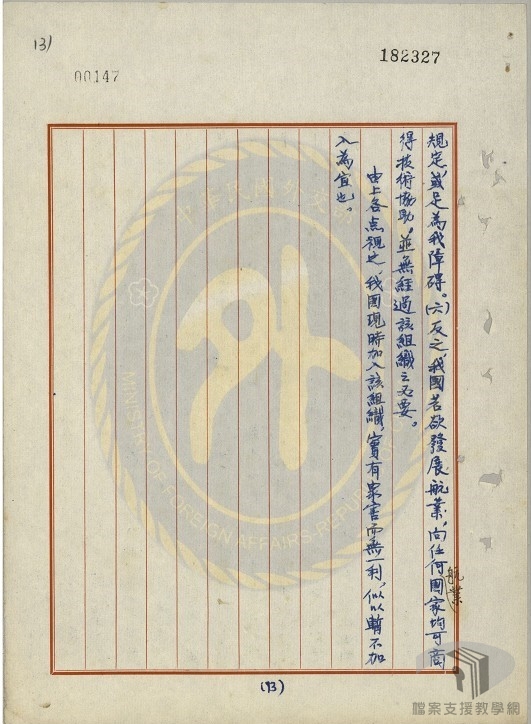 13)
182327
00147
規定，或足為我障碍。(六)反之，我國若欲發展航業，向任何航業國家均可商
得技術協助，並無經過該組織之必要。
由上各点視之，我國現時加入該組織，實有眾害而無一利，似以暫不加
入為宜也。
(93)
中華民國外交部
MINISTRY OF FOREIGN AFFAIRS·REPUBLIC
檔案支援教學網